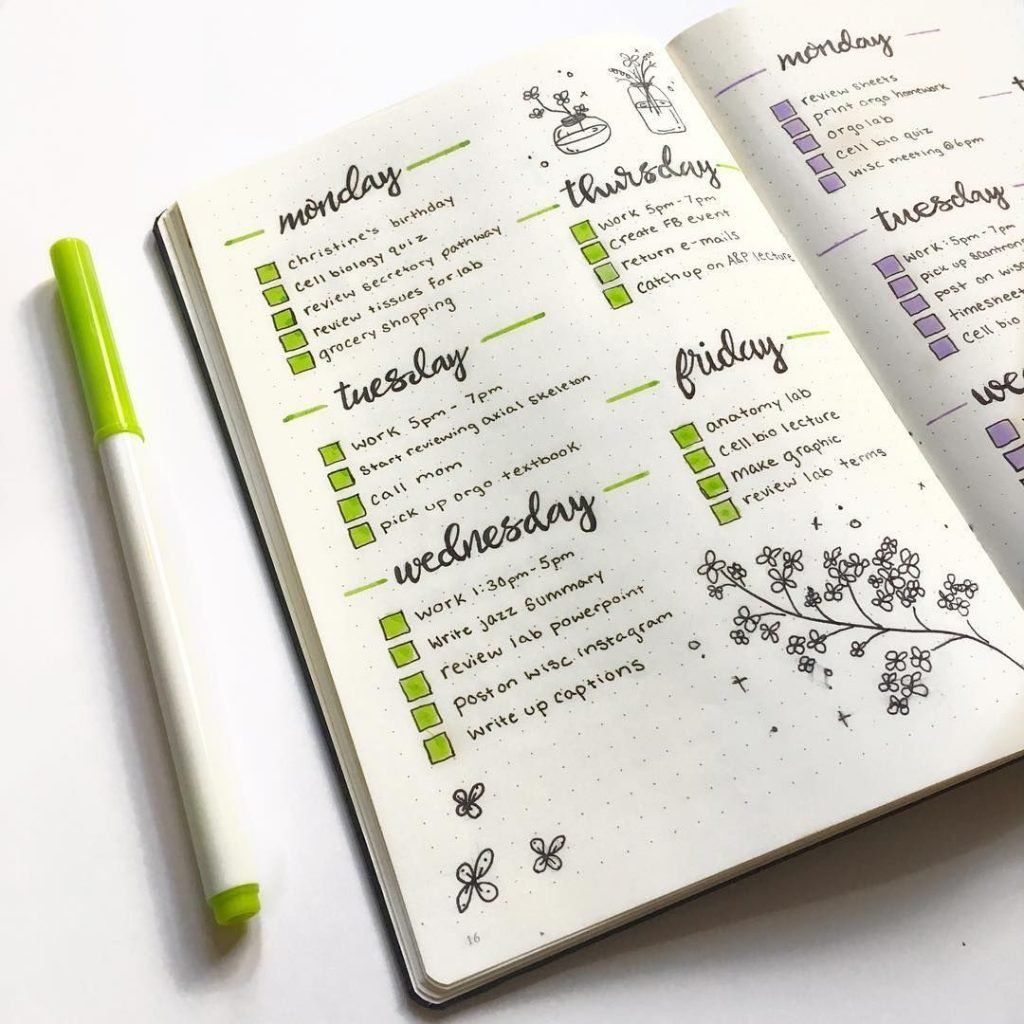 monday
christine's birthday
cell biology quiz
review secretory pathway
review tissues for lab
grocery shopping
tuesday
work 5pm - 7pm
start reviewing axial skeleton
call mom
pick up orgo textbook
wednesday
work 1:30pm - 5pm
write jazz summary
review lab powerpoint
post on wisc instagram
write up captions
16
thursday
work 5pm - 7pm
create FB event
return e-mails
catch up on A&P lecture
friday
anatomy lab
cell bio lecture
make graphic
review lab terms
monday
review sheets
print orgo homework
orgo lab
cell bio quiz
wisc meeting @ 6pm
tuesday
work: 5pm - 7pm
pick up scantron
post on wisc
timesheet
cell bio
we
t